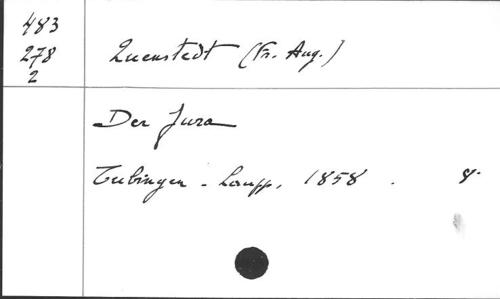 483
278
2
Quenstedt (Fr. Aug.)
Der Jura
Tubingen - Laupp, 1858 . 8°